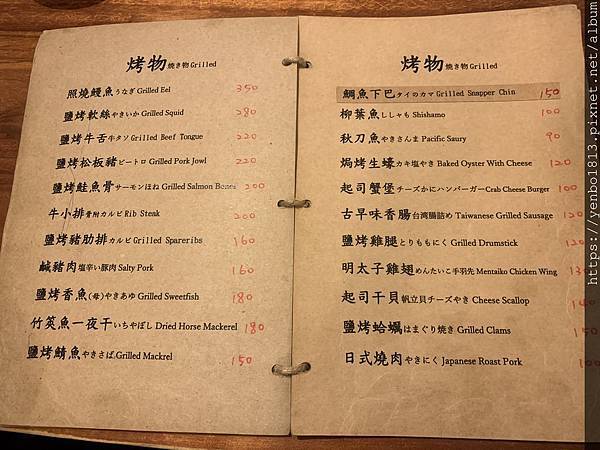 烤物 焼き物 Grilled
照燒鰻魚 うなぎ Grilled Eel 350
鹽烤軟絲 やきいか Grilled Squid 280
鹽烤牛舌 牛タン Grilled Beef Tongue 220
鹽烤松板豬 ピートロ Grilled Pork Jowl 220
鹽烤鮭魚骨 サーモンほね Grilled Salmon Bones 200
牛小排 骨附カルビ Rib Steak 200
鹽烤豬肋排 カルビ Grilled Spareribs 160
鹹豬肉 塩辛い豚肉 Salty Pork 160
鹽烤香魚(母) やきあゆ Grilled Sweetfish 180
竹筴魚一夜干 いちやぼし Dried Horse Mackerel 180
鹽烤鯖魚 やきさば Grilled Mackrel 150
烤物 焼き物 Grilled
鯛魚下巴 タイのカマ Grilled Snapper Chin 150
柳葉魚 ししゃも Shishamo 100
秋刀魚 やきさんま Pacific Saury 90
焗烤生蠔 カキ塩やき Baked Oyster With Cheese 120
起司蟹堡 チーズかにハンバーガー Crab Cheese Burger 100
古早味香腸 台湾腸詰め Taiwanese Grilled Sausage 120
鹽烤雞腿 とりももにく Grilled Drumstick 120
明太子雞翅 めんたいこ手羽先 Mentaiko Chicken Wing 130
起司干貝 帆立貝チーズやき Cheese Scallop 140
鹽烤蛤蠣 はまぐり焼き Grilled Clams 150
日式燒肉 やきにく Japanese Roast Pork 100
https://yenbo1813.pixnet.net/album